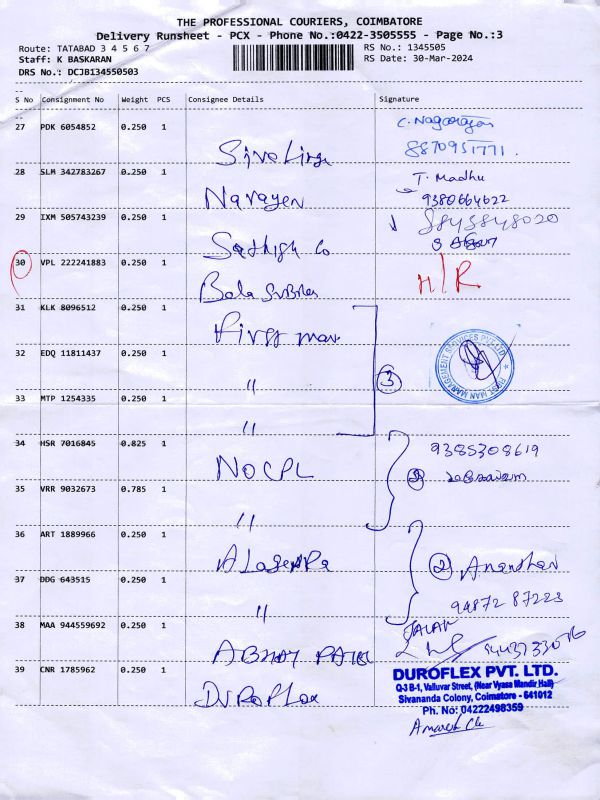 THE PROFESSIONAL COURIERS, COIMBATORE
Delivery Runsheet - PCX - Phone No.:0422-3505555 - Page No.:3
Route: TATABAD 3 4 5 6 7
RS No.: 1345505
Staff: K BASKARAN
RS Date: 30-Mar-2024
DRS No.: DCJB134550503
S No Consignment No Weight PCS Consignee Details Signature
27 PDK 6054852 0.250 1 C. Nagarajan
8870951771
28 SLM 342783267 0.250 1 T. Madhu
Narayen 9380664622
29 IXM 505743239 0.250 1
Sathish Co
30 VPL 222241883 0.250 1 H/R
Bala
31 KLK 8096512 0.250 1
First man
32 EDQ 11811437 0.250 1
" 3
FIRST MAN MANAGEMENT SERVICES PVT LTD
33 MTP 1254335 0.250 1
"
34 HSR 7016845 0.825 1 9385308619
NOCPL
35 VRR 9032673 0.785 1
"
36 ART 1889966 0.250 1
2
37 DDG 643515 0.250 1
" 94872 87223
38 MAA 944559692 0.250 1
ABHAY PATEL
39 CNR 1785962 0.250 1
DUROFLEX PVT. LTD.
Q-3 B-1, Valluvar Street, (Near Vyasa Mandir Hall)
Sivananda Colony, Coimatore - 641012
Ph. No: 04222498359